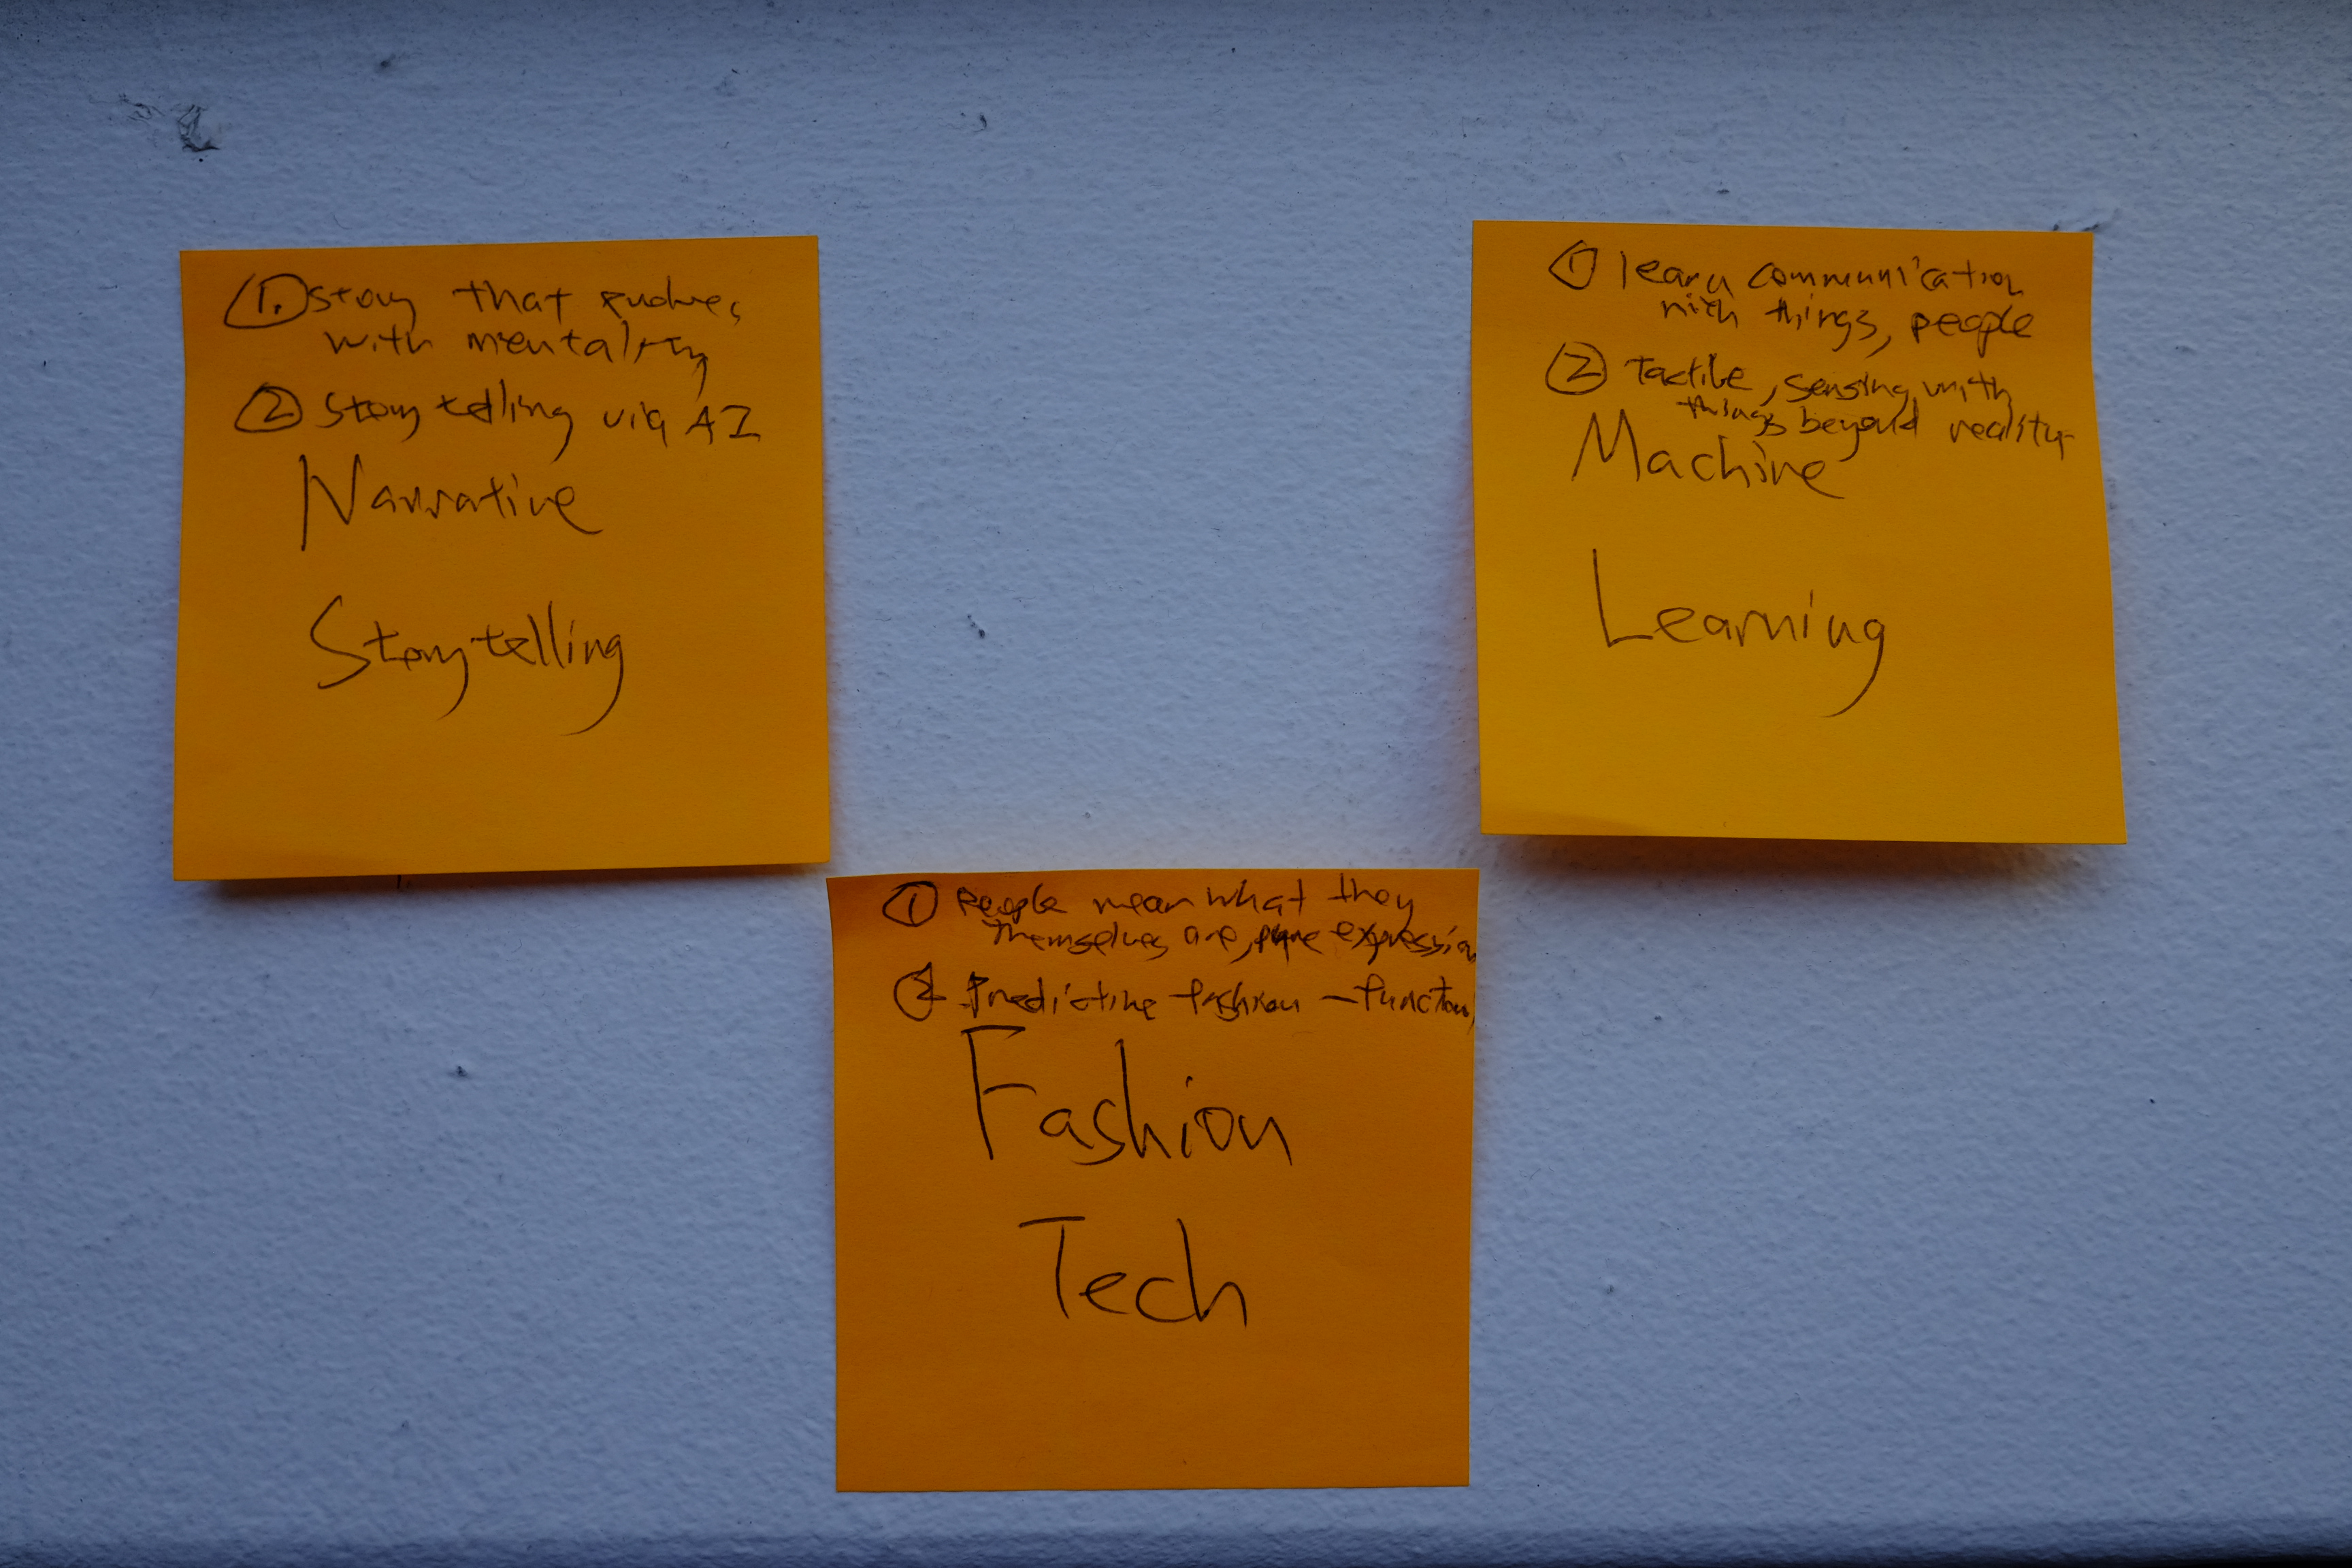 1. Story that evolves
with mentality
2 Storytelling via AI
Narrative
Storytelling
1 learn communication
with things, people
2 Tactile, sensing with
things beyond reality
Machine
Learning
1 People mean what they
themselves are, pure expression
2 Predictive fashion – function
Fashion
Tech